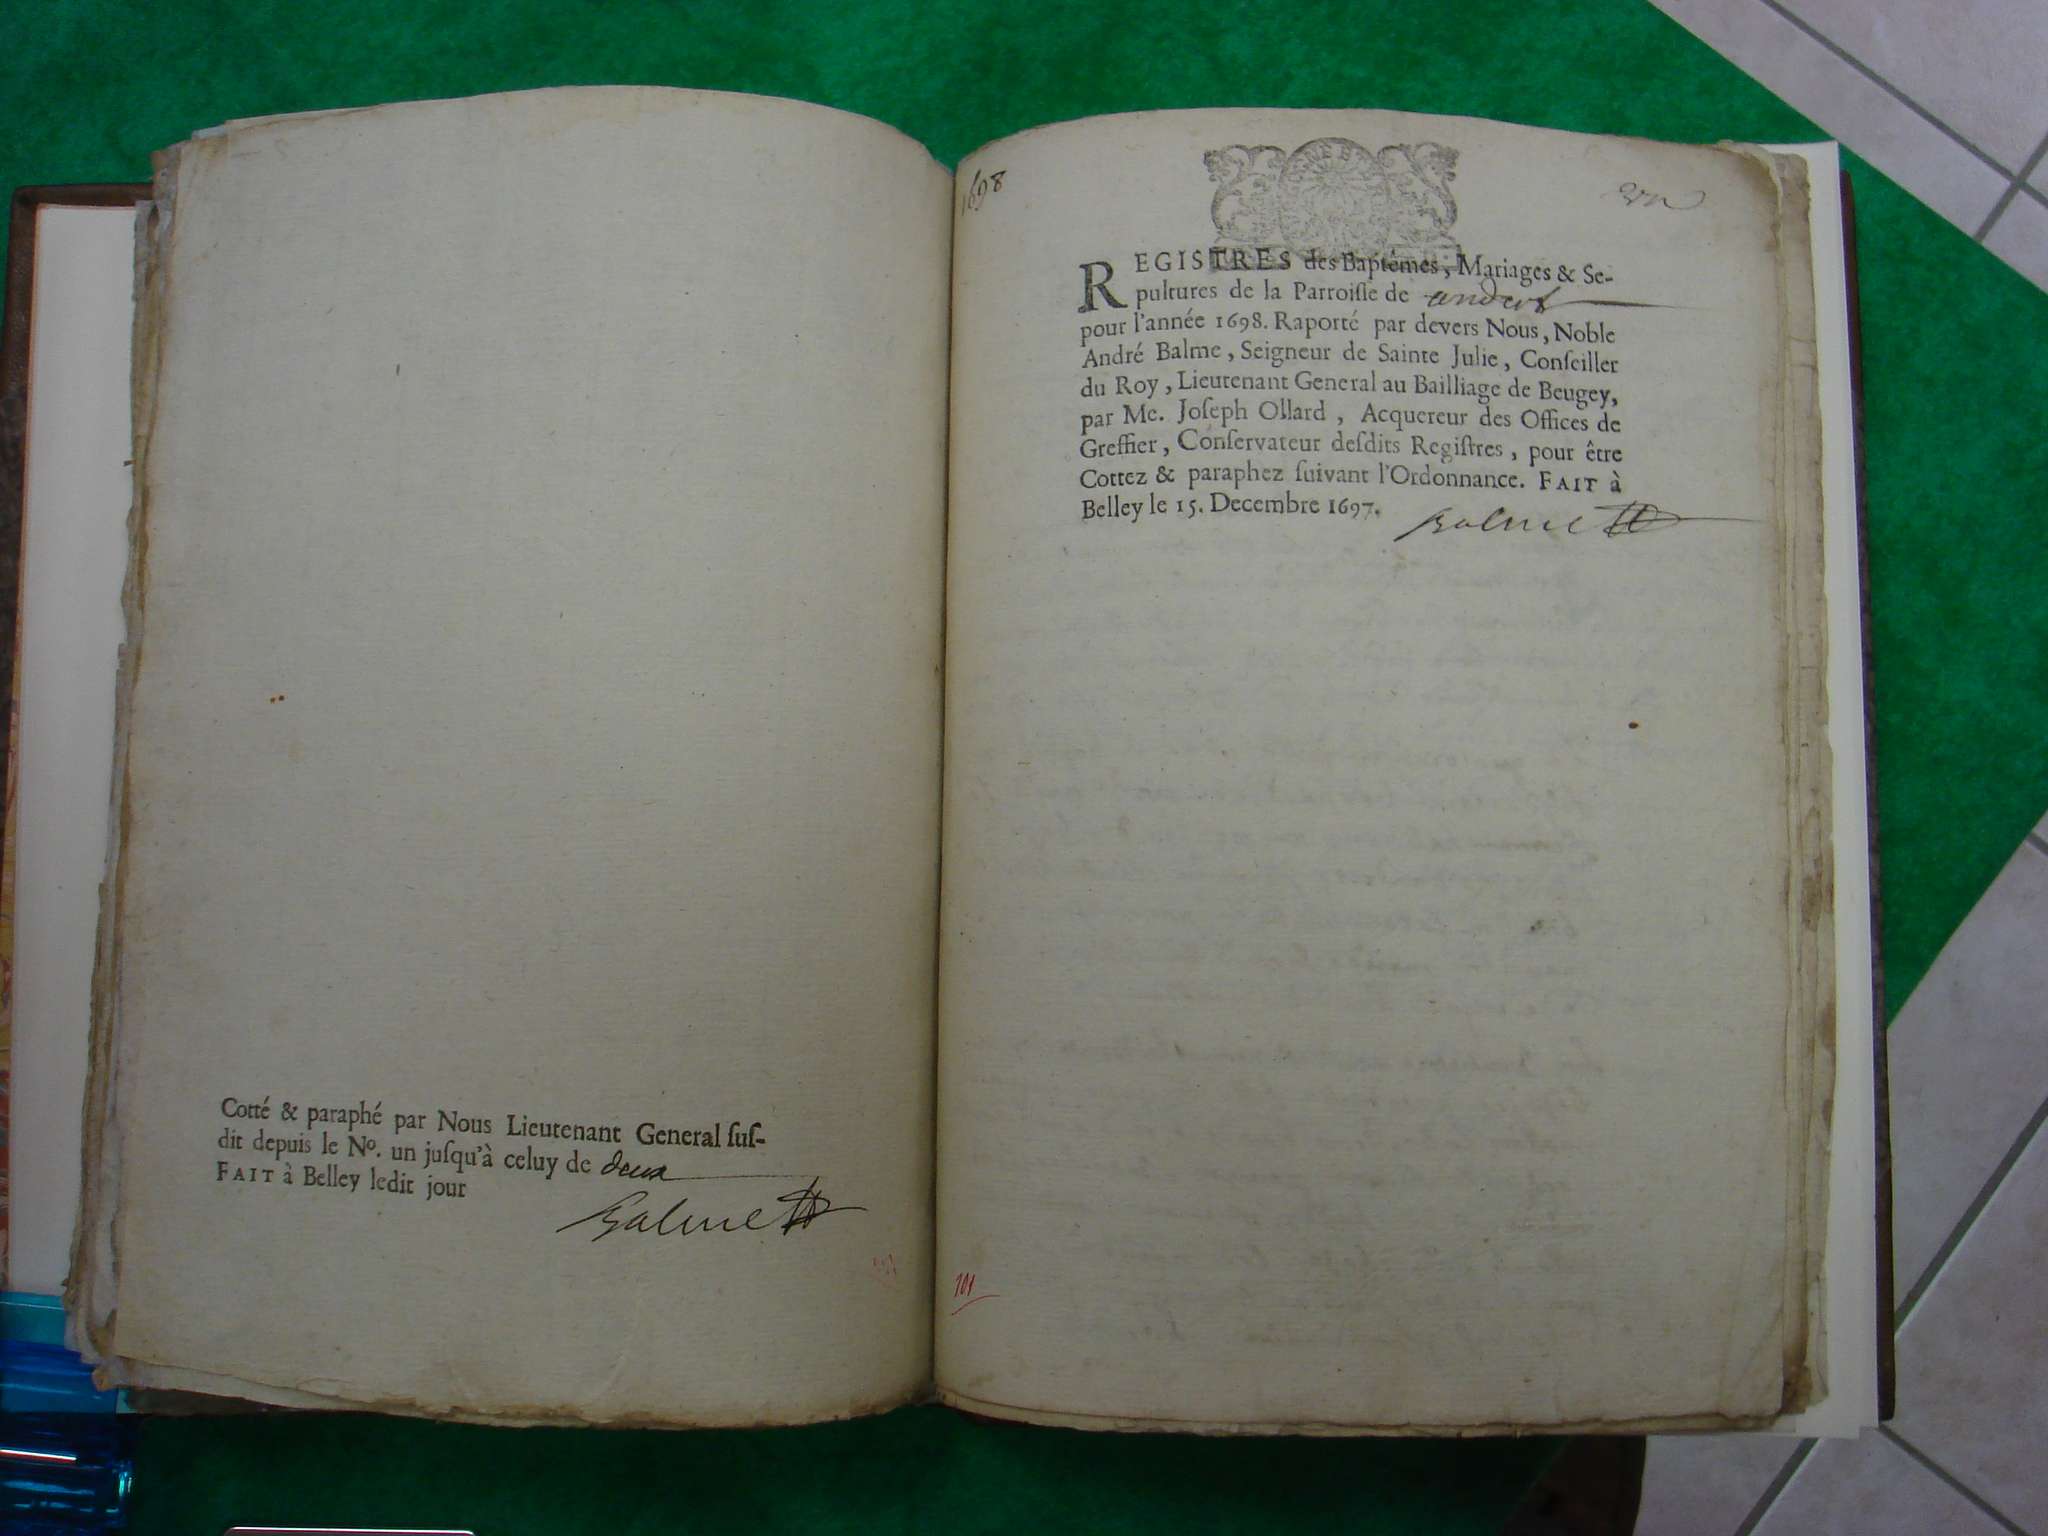 Cotté & paraphé par Nous Lieutenant General ſuſ-
dit depuis le Nº. un juſqu'à celuy de deux
FAIT à Belley ledit jour
Balme
1698
un
REGISTRES des Baptêmes, Mariages & Se-
pultures de la Parroiſſe de andert
pour l'année 1698. Raporté par devers Nous, Noble
André Balme, Seigneur de Sainte Julie, Conſeiller
du Roy, Lieutenant General au Bailliage de Beugey,
par Me. Joſeph Ollard, Acquereur des Offices de
Greffier, Conſervateur deſdits Regiſtres, pour être
Cottez & paraphez ſuivant l'Ordonnance. FAIT à
Belley le 15. Decembre 1697.
Balme
101